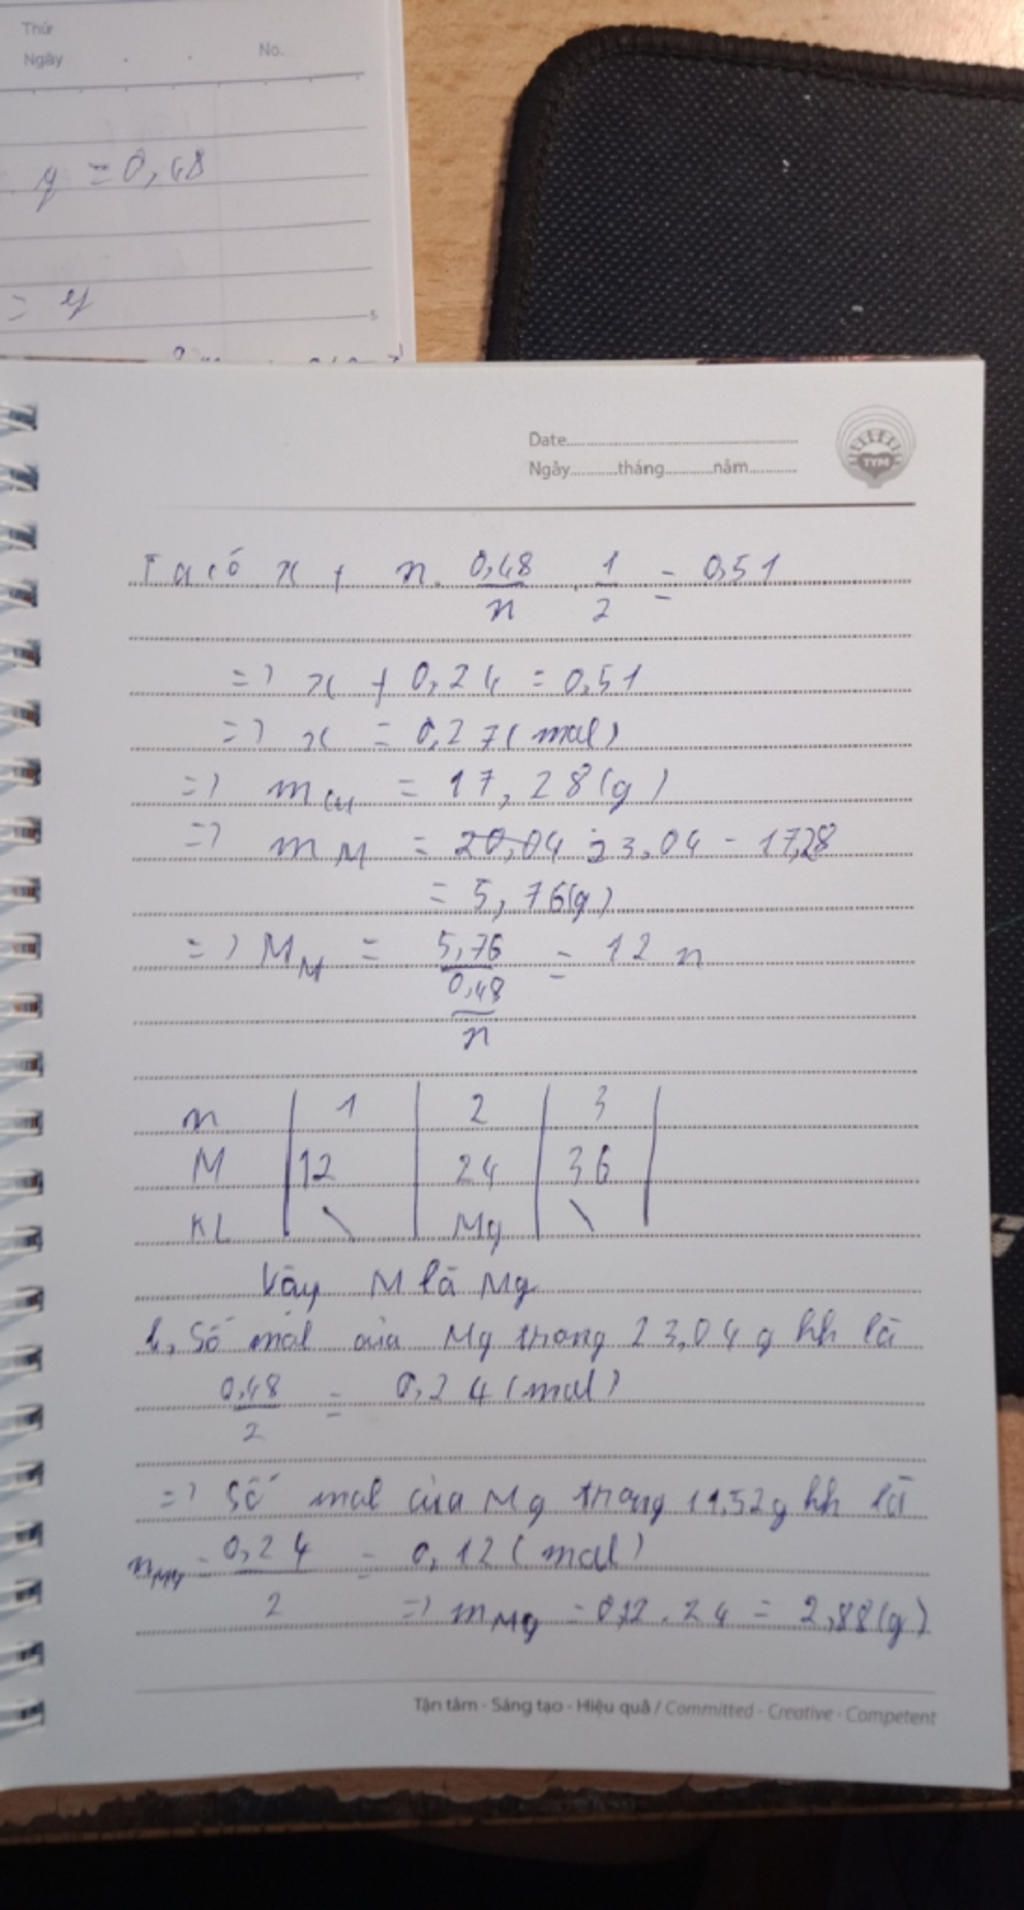 Thứ
Ngày No.
y = 0,48
= y
Date
Ngày tháng năm
TYM
Ta có x + n. 0,48/n . 1/2 = 0,51
=> x + 0,24 = 0,51
=> x = 0,27 (mol)
=> mCu = 17,28 (g)
=> mM = 23,04 - 17,28
= 5,76 (g)
=> MM = 5,76 / (0,48/n) = 12 n
n | 1 | 2 | 3 |
M | 12 | 24 | 36 |
KL | \ | Mg | \ |
Vậy M là Mg
b, Số mol của Mg trong 23,04 g hh là
0,48/2 = 0,24 (mol)
=> Số mol của Mg trong 11,52g hh là
nMg = 0,24/2 = 0,12 (mol)
=> mMg = 0,12 . 24 = 2,88 (g)
Tận tâm - Sáng tạo - Hiệu quả / Committed - Creative - Competent